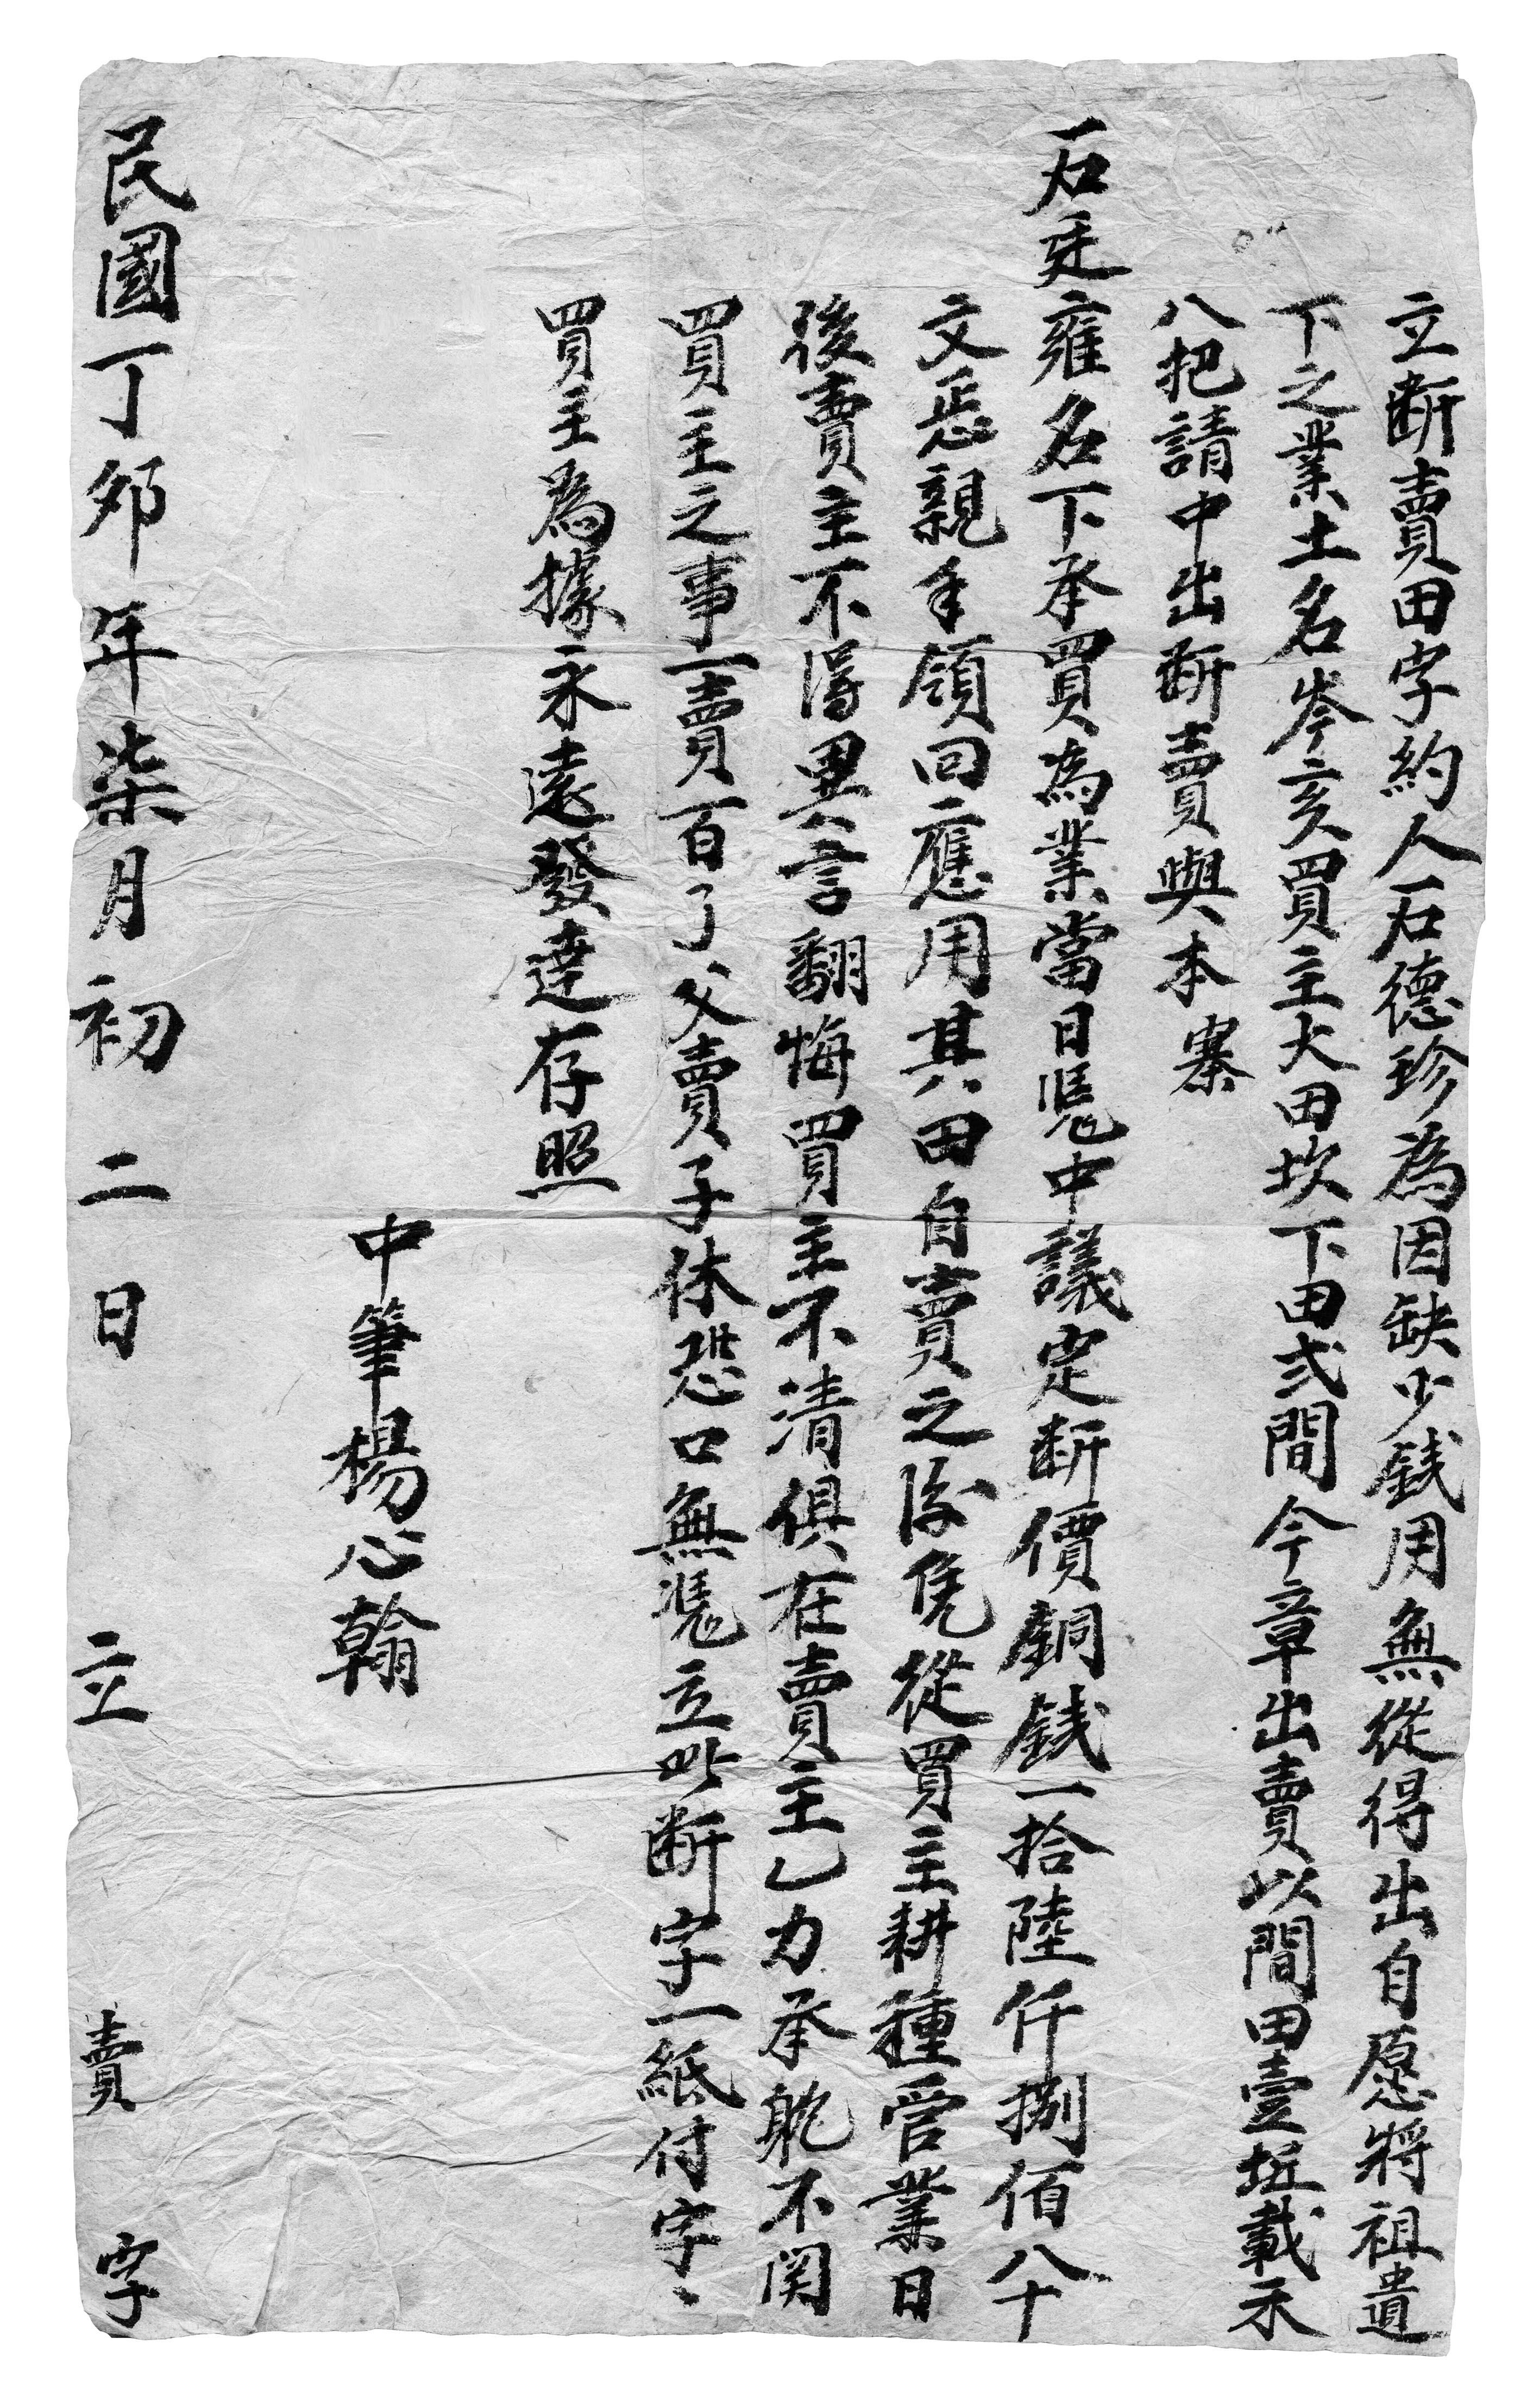 立断賣田字約人石德珍為因缺少銭用無從得出自愿將祖遺
下之業土名岑亥買主大田坎下田弍間今章出賣以間田壹坵載禾
八把請中出断賣與本寨
石廷雍名下承買為業當日凴中議定断價銅銭一拾陸仟捌佰八十
文恁親手領回應用其田自賣之後凭從買主耕種管業日
後賣主不得異言翻悔買主不清俱在賣主乙力承躭不関
買主之事一賣百了父賣子休恐口無凴立此断字一紙付字、
買主為據永遠發達存照
中筆楊心翰
民國丁夘年柒月初二日 立 賣 字